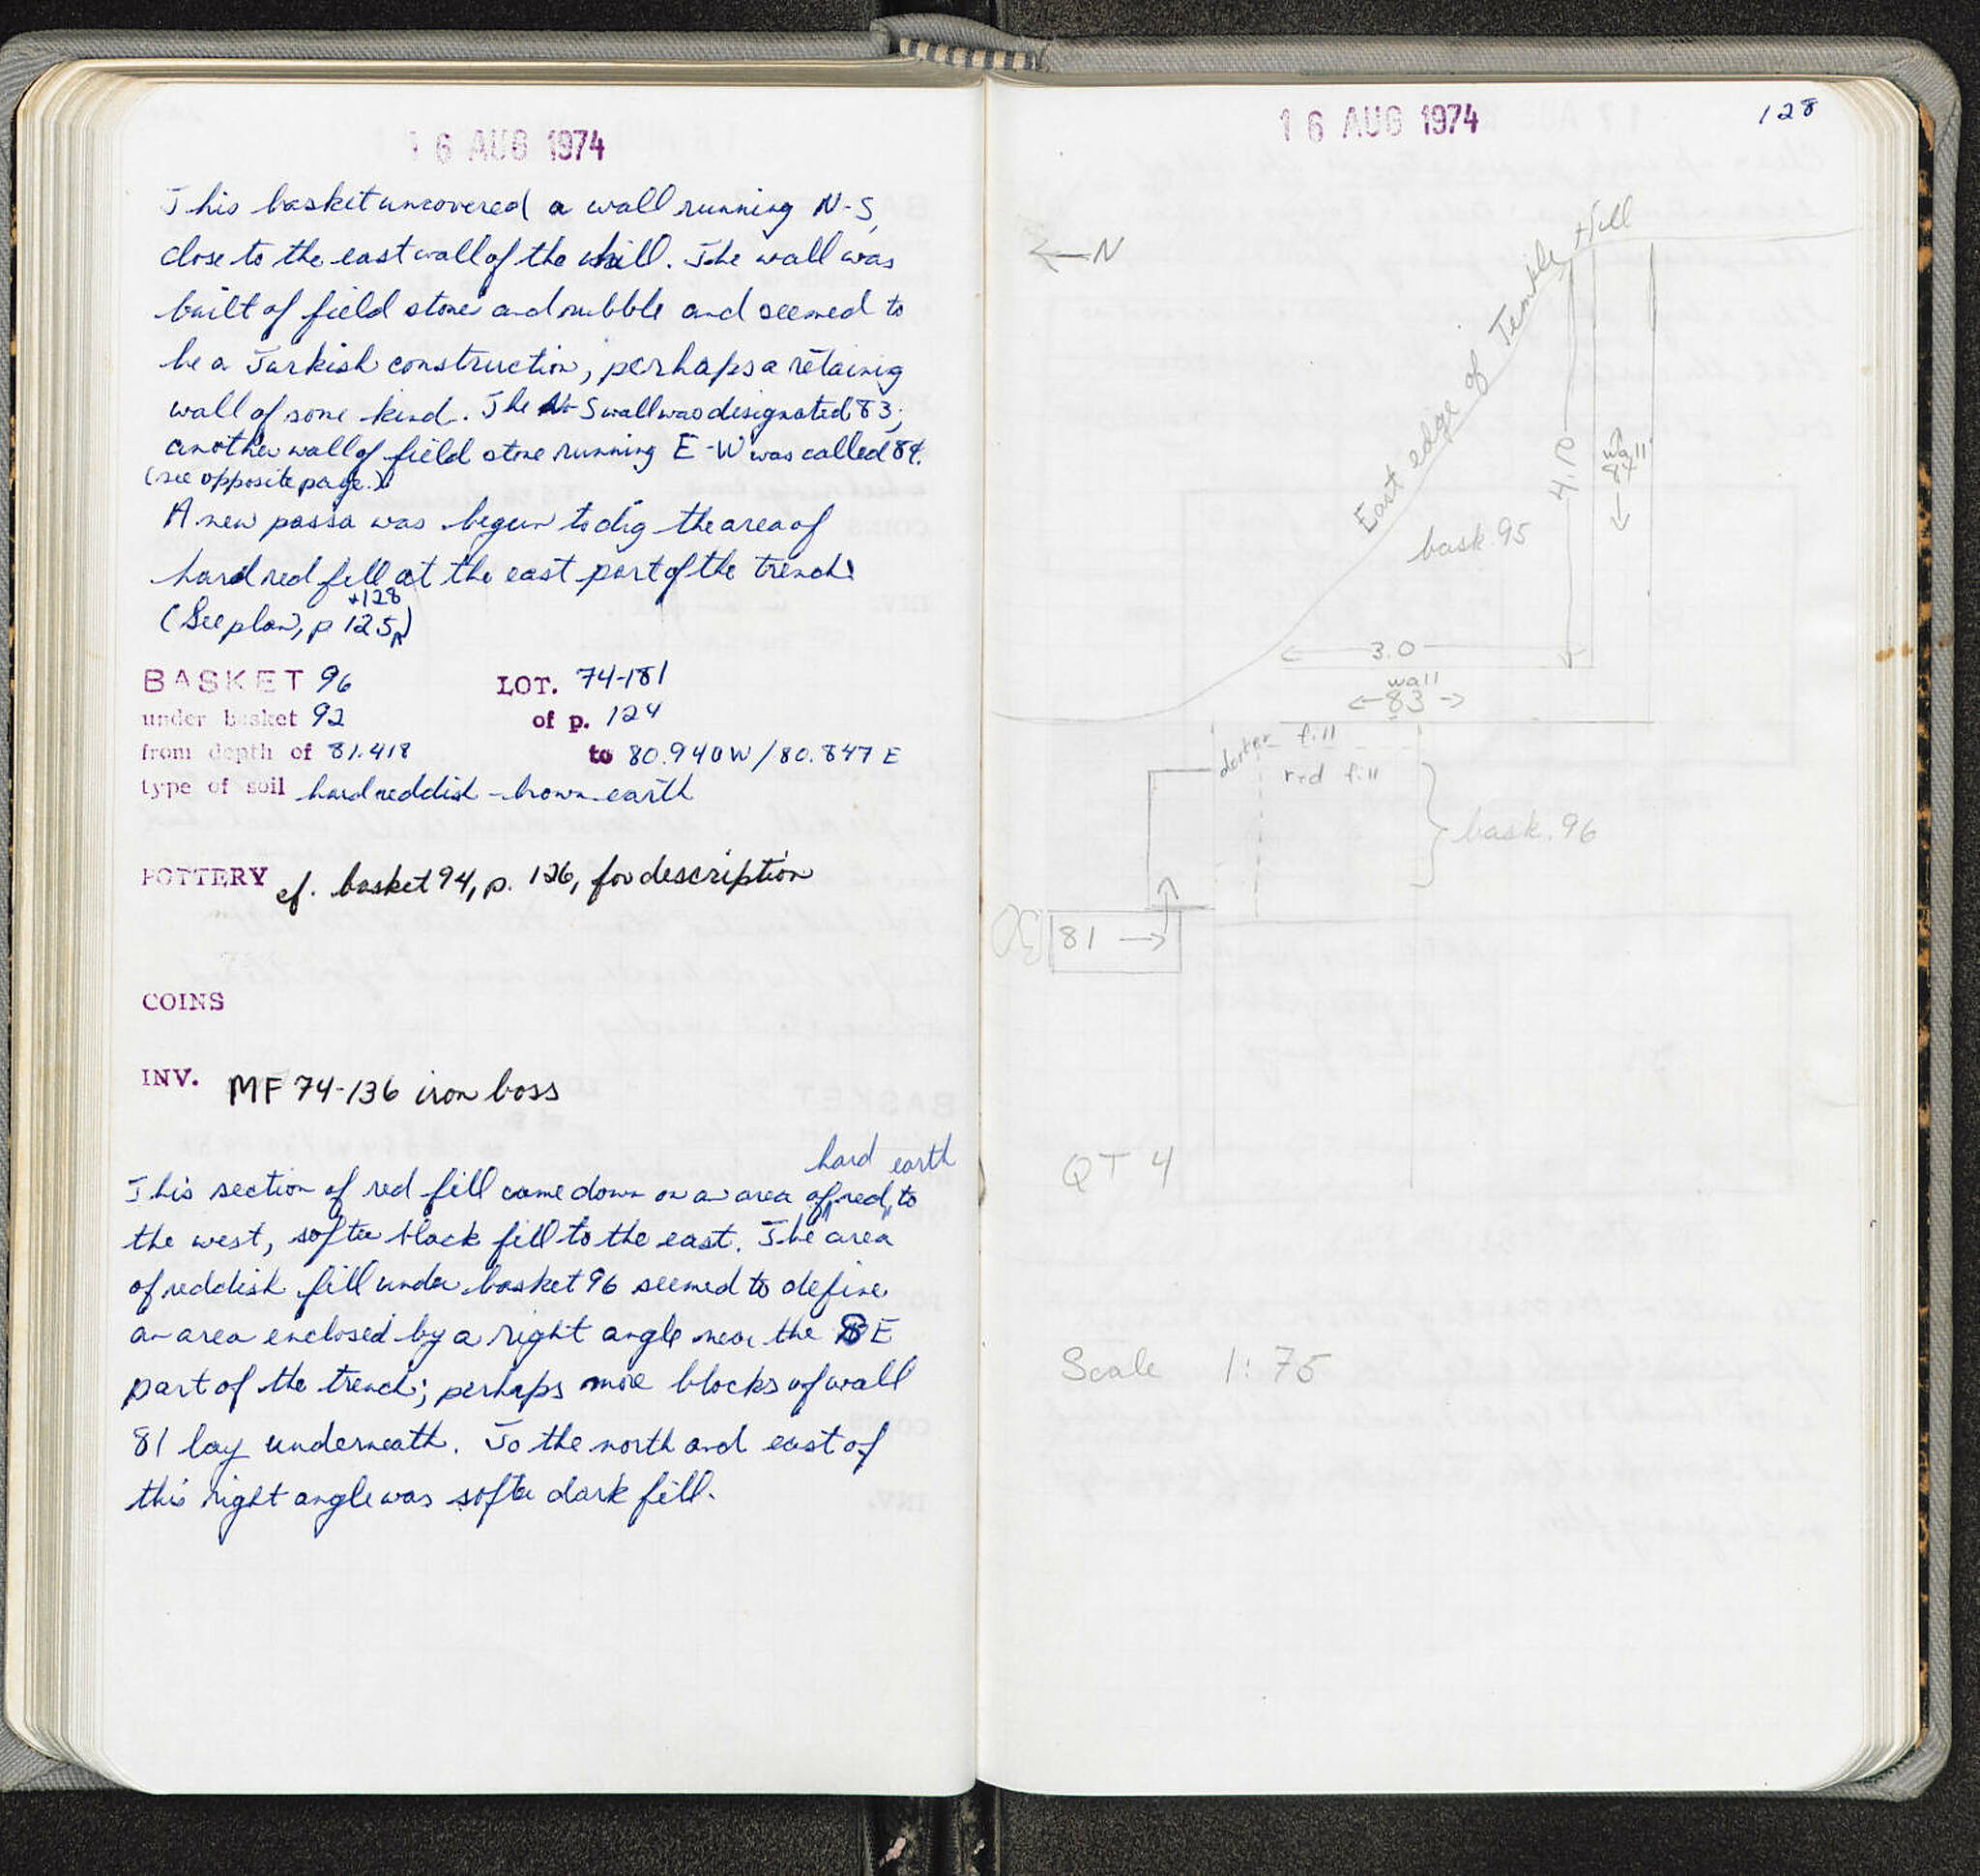 16 AUG 1974
This basket uncovered a wall running N-S,
close to the east wall of the hill. The wall was
built of field stones and rubble and seemed to
be a Turkish construction, perhaps a retainig
wall of some kind. The N-S wall was designated 83;
another wall of field stone running E-W was called 84.
(see opposite page.)
A new passa was begun to dig the area of
hard red fill at the east part of the trench.
+128
(See plan, p 125)
BASKET 96 LOT. 74-181
under basket 92 of p. 124
from depth of 81.418 to 80.940W/80.847 E
type of soil hard reddish-brown earth
POTTERY cf. basket 94, p. 126, for description
COINS
INV. MF 74-136 iron boss
hard earth
This section of red fill came down on an area of red, to
the west, softer black fill to the east. The area
of reddish fill under basket 96 seemed to define
an area enclosed by a right angle near the SE
part of the trench; perhaps more blocks of wall
81 lay underneath. To the north and east of
this right angle was softer dark fill.
16 AUG 1974
128
N
East edge of Temple Hill
wall
84
bask. 95
3.0
wall
83
darker fill
red fill
bask. 96
81
QT 4
Scale 1:75